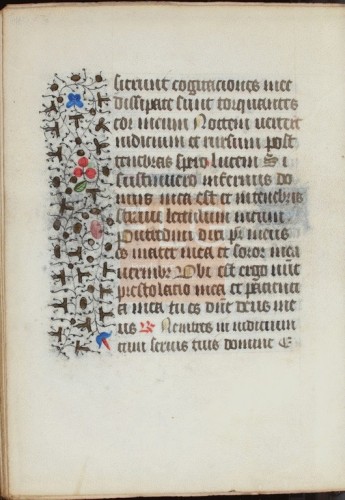 sierunt cogitaciones mee
dissipate sunt torquentes
cor meum Noctem uertert
indicium et rursum post
tenebras spero lucem Si
sustinuero infernus do
mus mea est et in tenebris
straui lectulum meum
Putredini dixi pr meus
es mater mea et soror mea
uermibz Vbi est ergo nuc
prestolacio mea et pacienci
a mea tu es dne deus me
us Ne intres in iudicium
cum seruis tuis domine